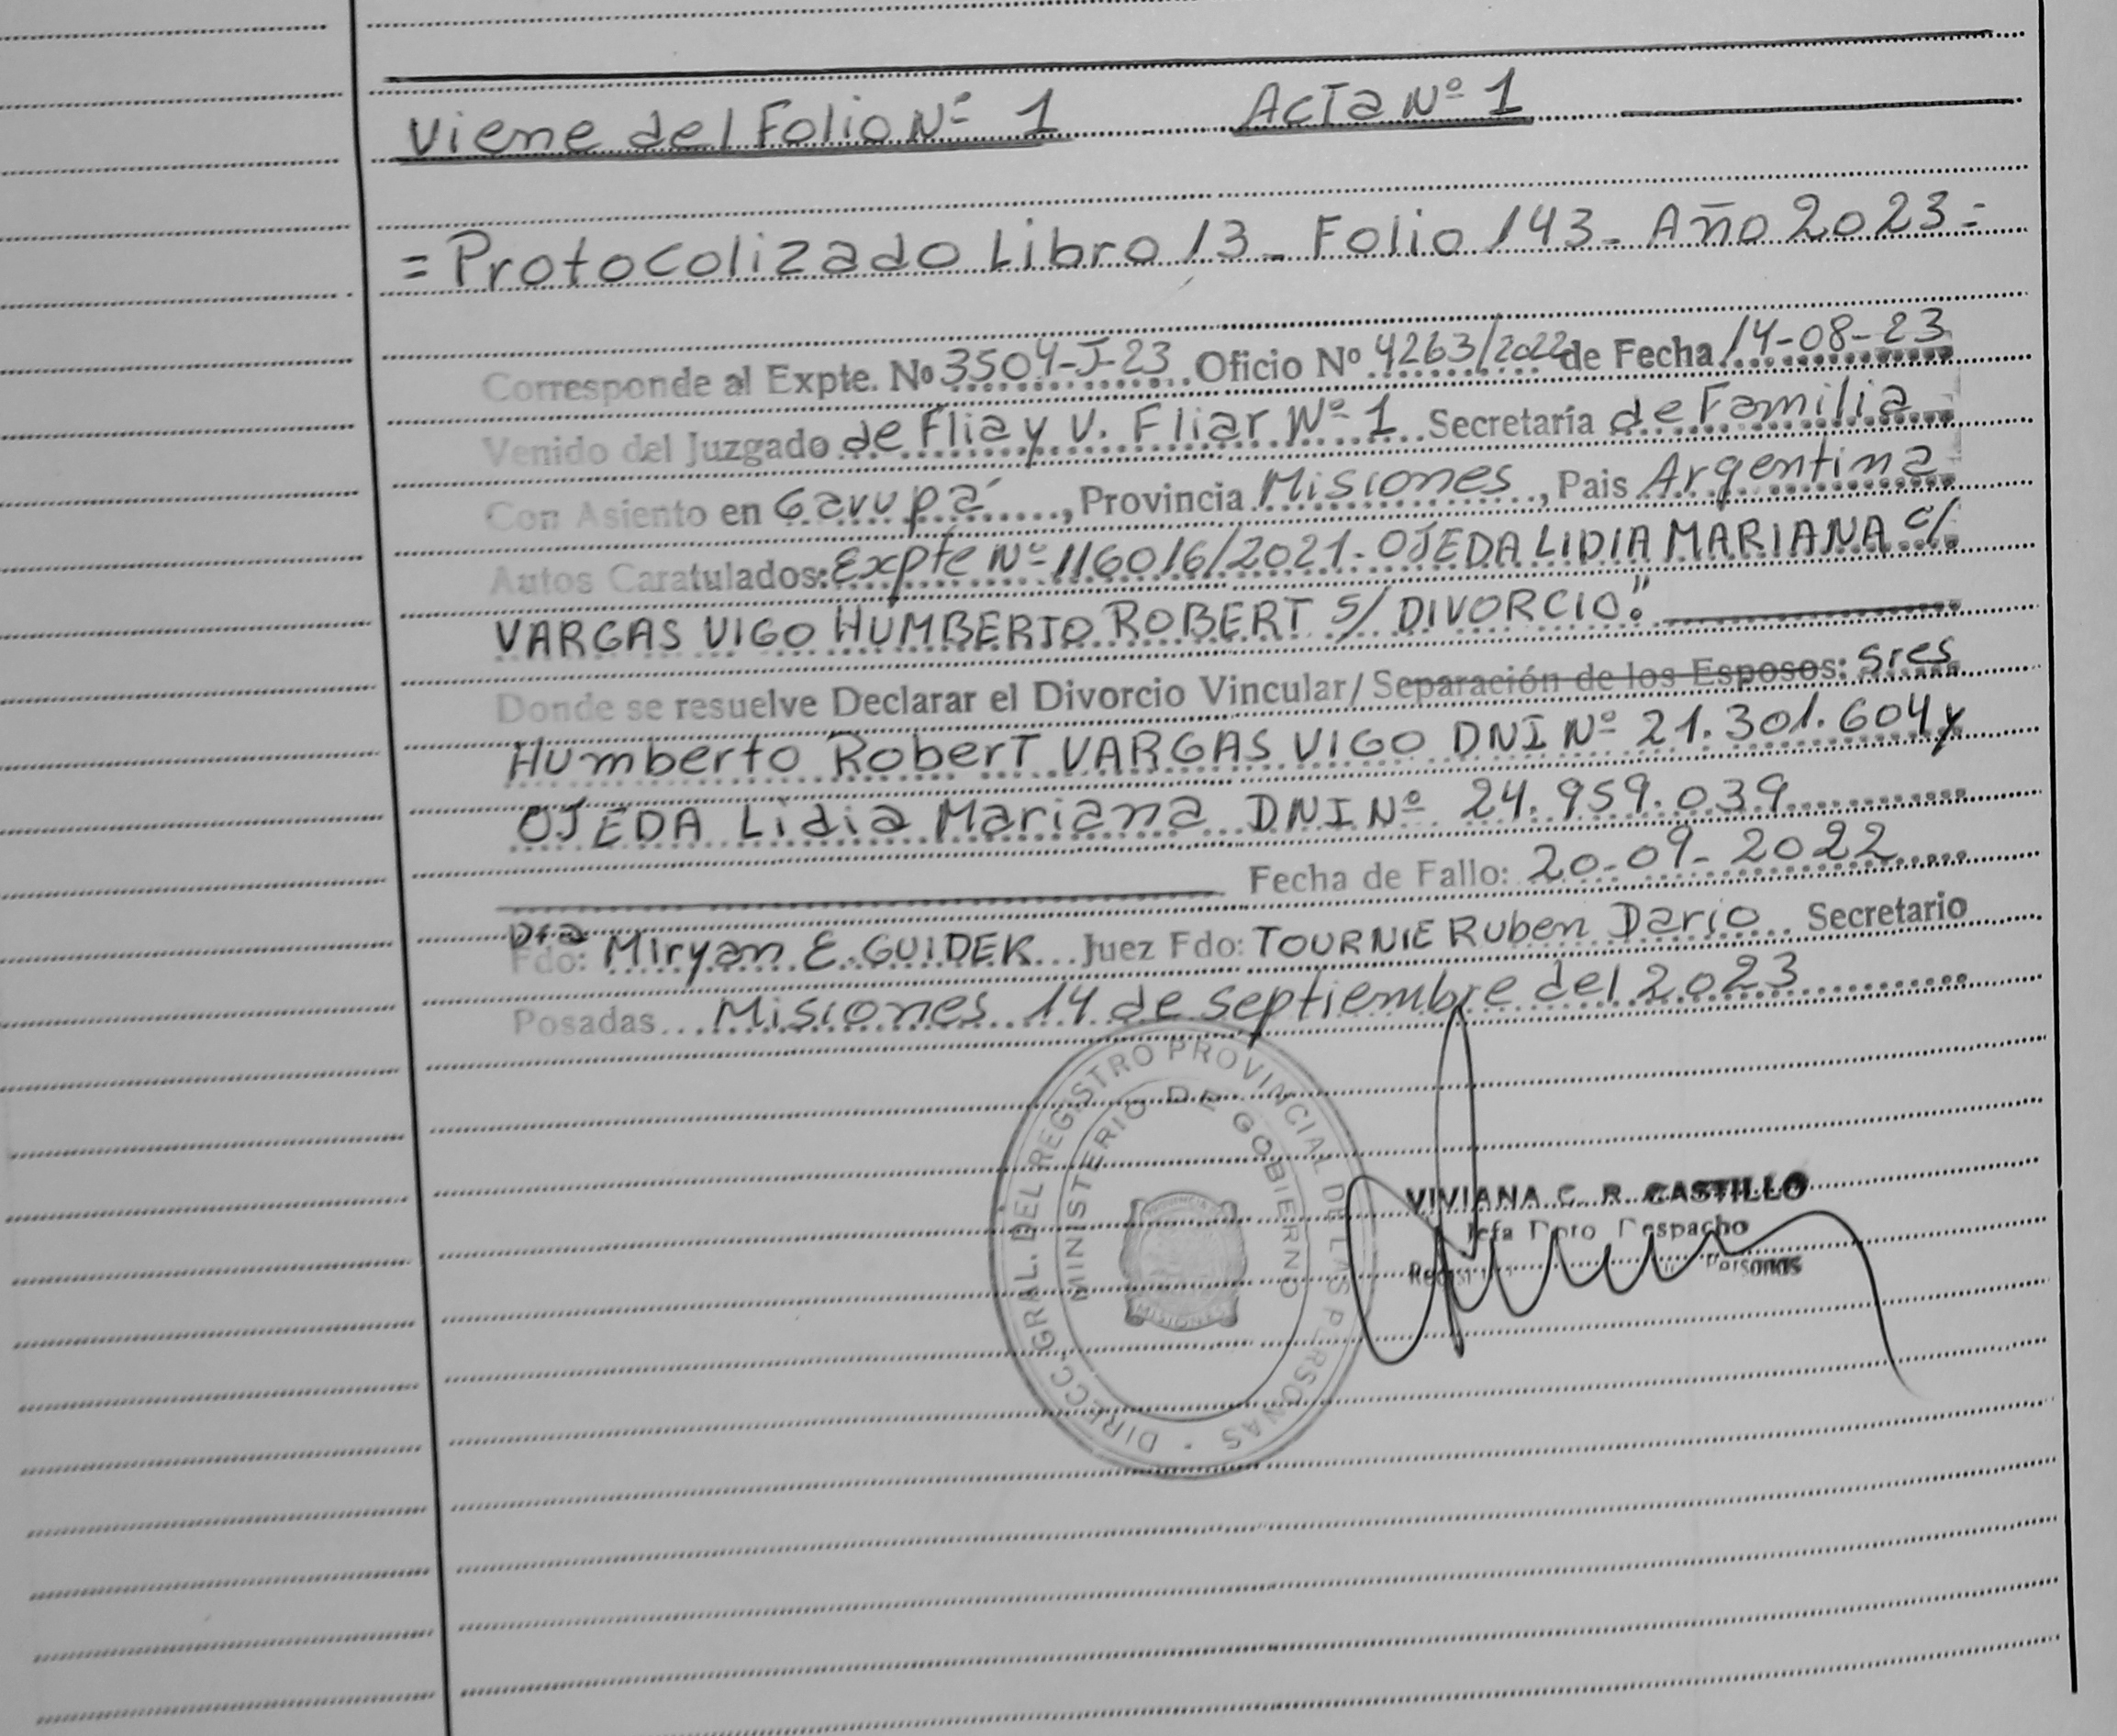 Viene del Folio Nº 1 Acta Nº 1
= Protocolizado Libro 13 - Folio 143 - Año 2023 =
Corresponde al Expte. Nº 3504-J-23 Oficio Nº 4263/2022 de Fecha 14-08-23
Venido del Juzgado de Flia y V. Fliar Nº 1 Secretaría de Familia
Con Asiento en Garupá, Provincia Misiones, Pais Argentina
Autos Caratulados: Expte Nº 116016/2021. OJEDA LIDIA MARIANA c/
VARGAS VIGO HUMBERTO ROBERT S/ DIVORCIO."
Donde se resuelve Declarar el Divorcio Vincular/ Separación de los Esposos: Sres
Humberto Robert VARGAS VIGO DNI Nº 21.301.604 y
OJEDA Lidia Mariana DNI Nº 24.959.039
Fecha de Fallo: 20-09-2022
Fdo: Dra Miryan E. GUIDEK Juez Fdo: TOURNIE Ruben Dario Secretario
Posadas Misiones 14 de septiembre del 2023
DIRECC. GRAL. DEL REGISTRO PROVINCIAL DE LAS PERSONAS
MINISTERIO DE GOBIERNO
MISIONES
VIVIANA C. R. CASTILLO
Jefa Dpto Despacho
Personas